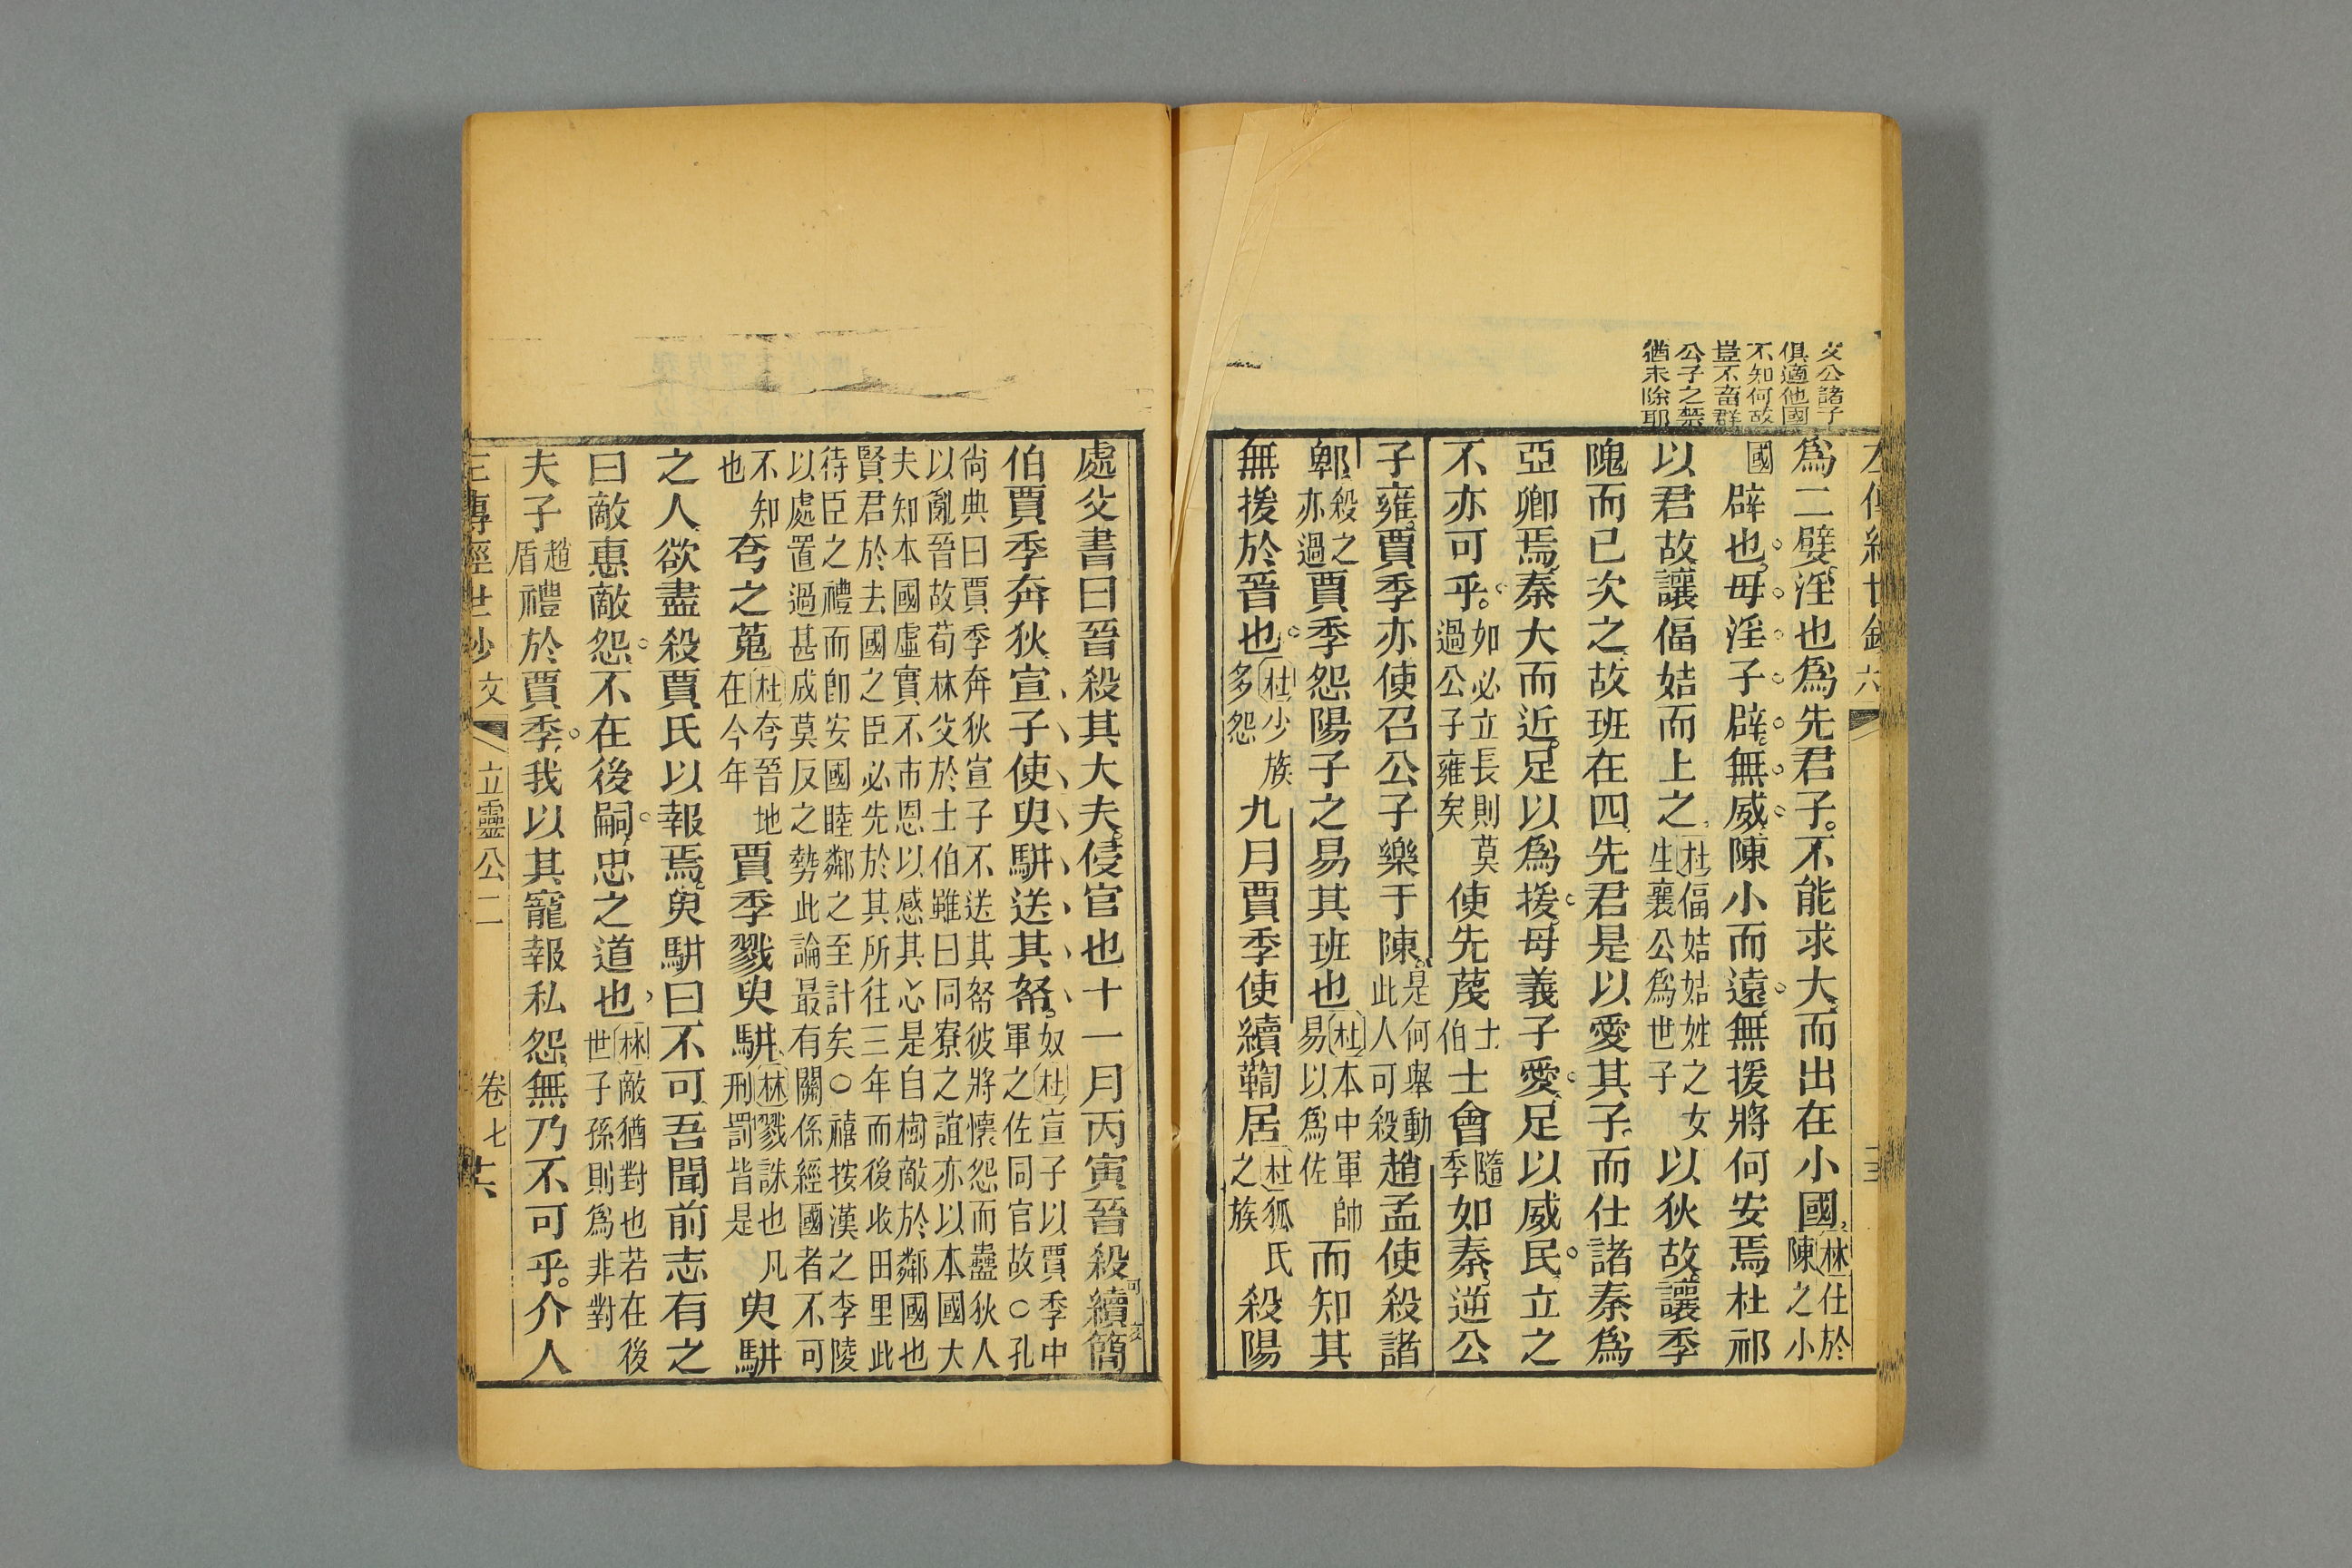 文公諸子
俱適他國
不知何故
豈不畜群
公子之禁
猶未除耶
爲二嬖淫也爲先君子不能求大而出在小國林仕於陳之小
國辟也母淫子辟無威陳小而遠無援將何安焉杜祁
以君故讓偪姞而上之杜偪姞姞姓之女生襄公爲世子以狄故讓季
隗而已次之故班在四先君是以愛其子而仕諸秦爲
亞卿焉秦大而近足以爲援母義子愛足以威民立之
不亦可乎如必立長則莫過公子雍矣使先蔑士伯士會隨季如秦逆公
子雍賈季亦使召公子樂于陳是何舉動此人可殺趙孟使殺諸
郫殺之亦過賈季怨陽子之易其班也杜本中軍帥易以爲佐而知其
無援於晉也杜少族多怨九月賈季使續鞫居杜狐氏之族殺陽
處父書曰晉殺其大夫侵官也十一月丙寅晉殺續簡
伯賈季奔狄宣子使臾駢送其帑奴杜宣子以賈季中軍之佐同官故〇孔
尙典曰賈季奔狄宣子不送其帑彼將懷怨而蠱狄人
以亂晉故荀林父於士伯雖曰同寮之誼亦以本國大
夫知本國虛實不市恩以感其心是自樹敵於鄰國也
賢君於去國之臣必先於其所往三年而後收田里此
待臣之禮而卽安國睦鄰之至計矣〇禧按漢之李陵
以處置過甚成莫反之勢此論最有關係經國者不可
不知也夸之蒐杜夸晉地在今年賈季戮臾駢林戮誅也凡刑罰皆是臾駢
之人欲盡殺賈氏以報焉臾駢曰不可吾聞前志有之
曰敵惠敵怨不在後嗣忠之道也林敵猶對也若在後世子孫則爲非對
夫子趙盾禮於賈季我以其寵報私怨無乃不可乎介人
傳經世鈔 文 立靈公二 卷七